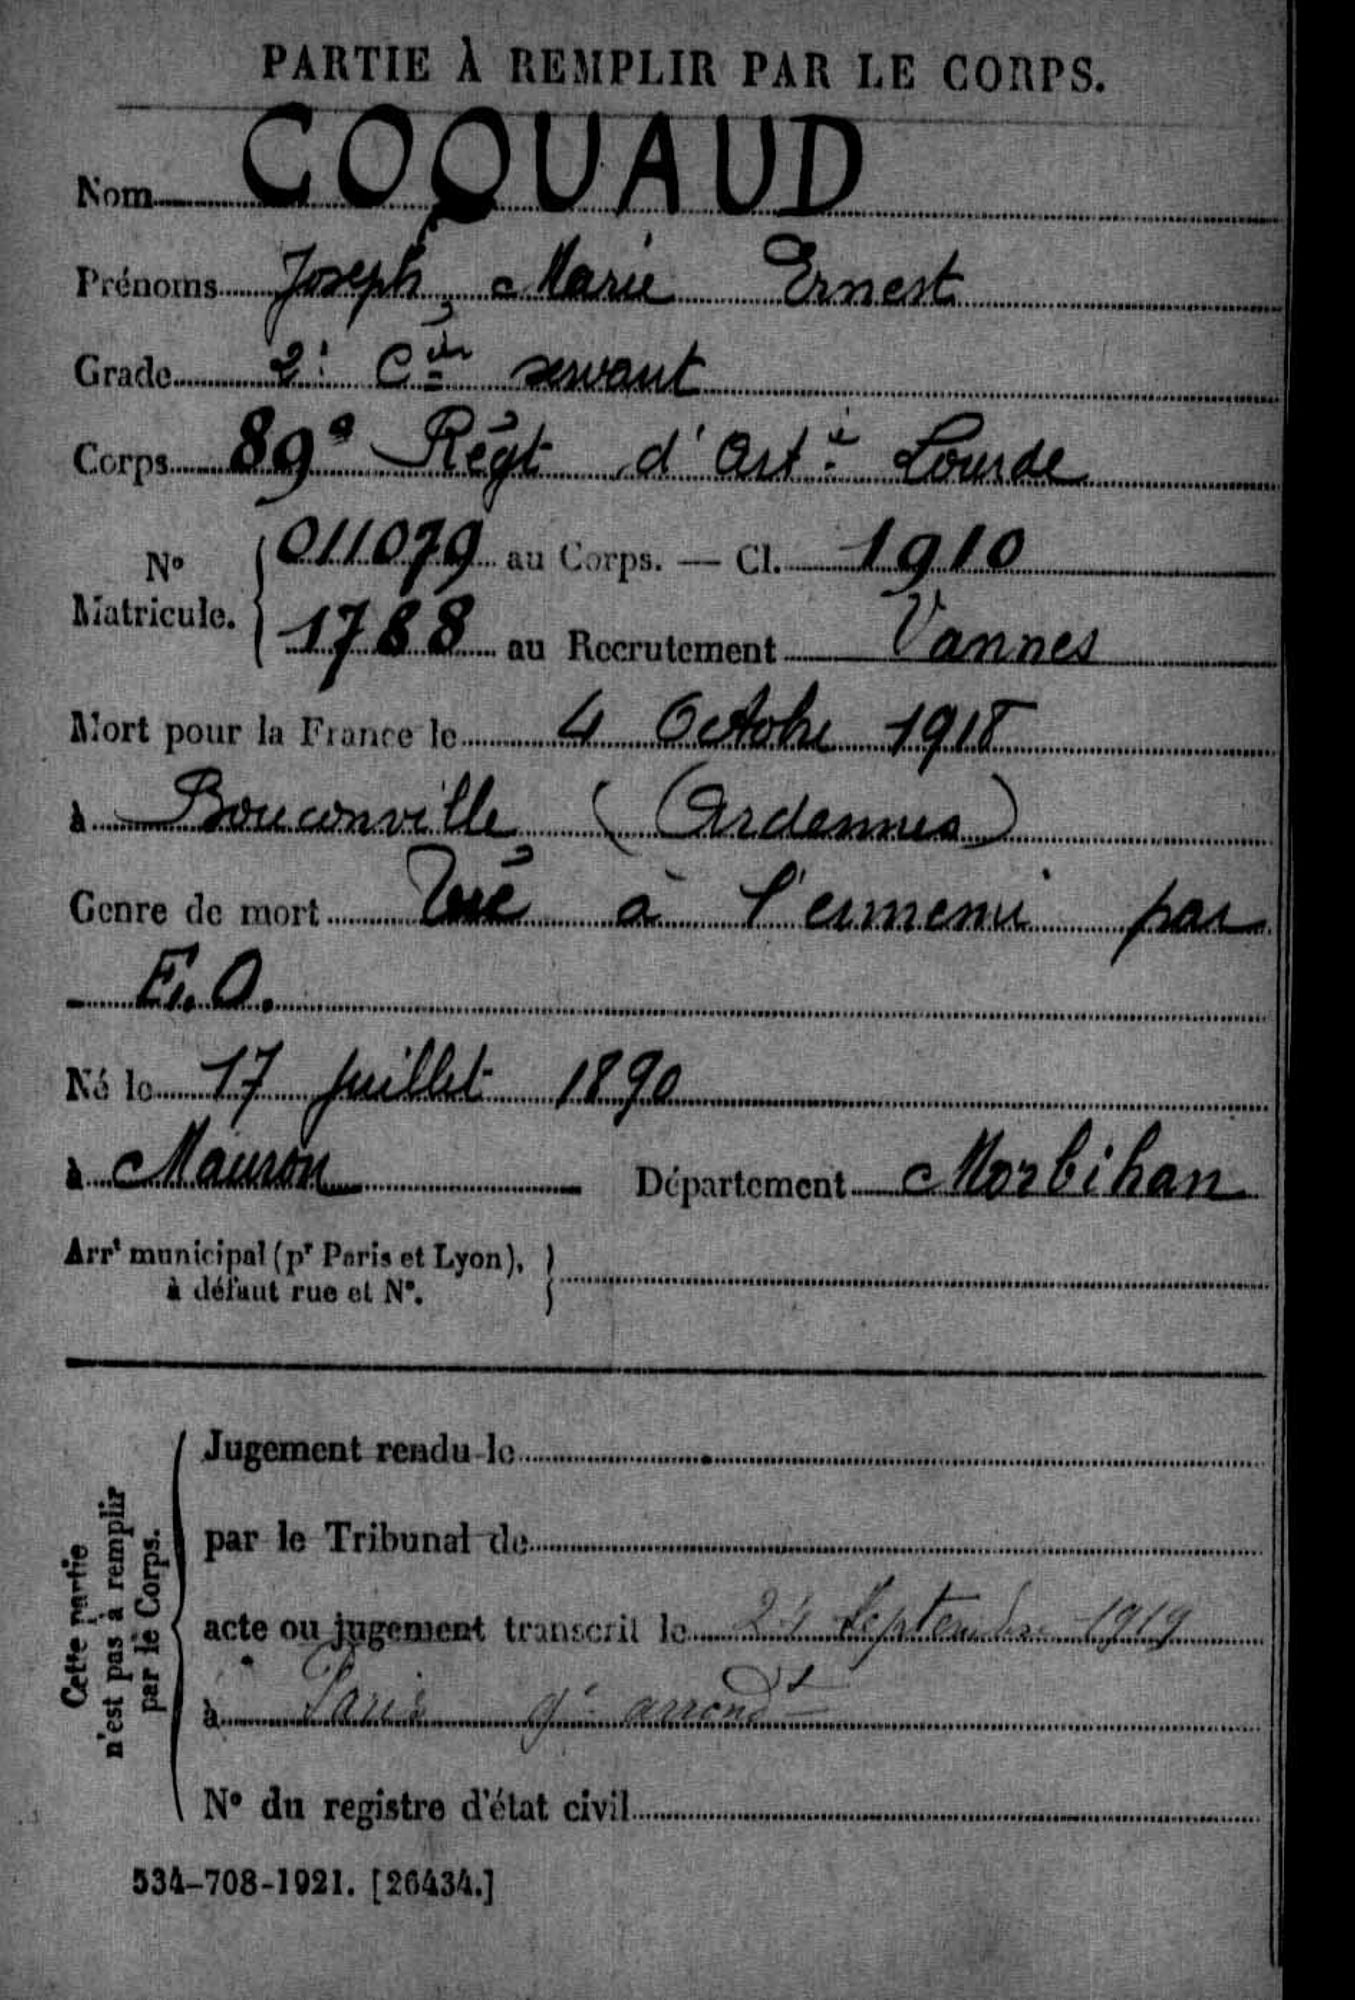 PARTIE À REMPLIR PAR LE CORPS.
Nom COQUAUD
Prénoms Joseph, Marie Ernest
Grade 2e Cer servant
Corps 89e Régt d'Artie Lourde
No Matricule. { 011079 au Corps. — Cl. 1910
1788 au Recrutement Vannes
Mort pour la France le 4 Octobre 1918
à Bouconville (Ardennes)
Genre de mort Tué à l'ennemi par
E. O.
Né le 17 Juillet 1890
à Mauron Département Morbihan
Arrt municipal (pr Paris et Lyon),
à défaut rue et No.
Cette partie
n'est pas à remplir
par le Corps.
Jugement rendu le
par le Tribunal de
acte ou jugement transcrit le 24 Septembre 1919
à Paris 9e arrondt
No du registre d'état civil
534-708-1921. [26434.]